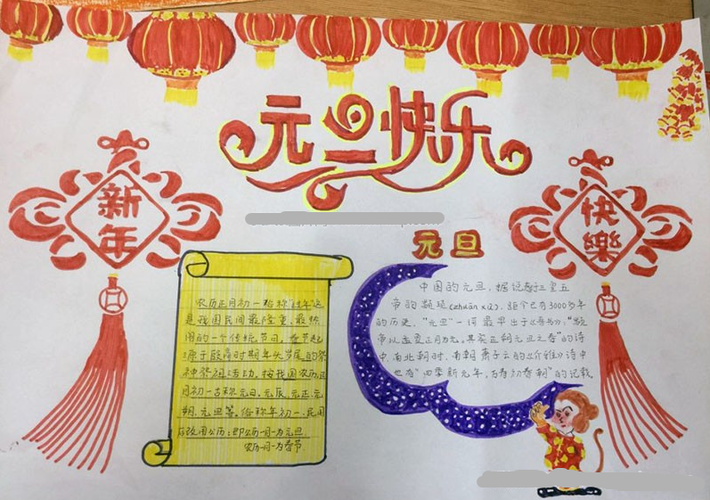 元旦快乐
新年
快樂
元旦
农历正月初一
是我国民间最隆重、最热
闹的一个传统节日。春节起
源于殷商时期年头岁尾的祭
神祭祖活动。按我国农历,正
月初一古称元日、元辰、元正、元
朔、元旦等。俗称年初一,民国
改用公历,即公历一月一为元旦
农历一月一为春节
中国的元旦,据说
帝的颛顼(zhuān xū),距今已有3000多年
的历史。"元旦"一词最早出于《晋书》:"颛
的诗
中。南北朝时,南朝萧子云的《介雅》诗中
也有"四季新元旦,万寿初春朝"的记载。